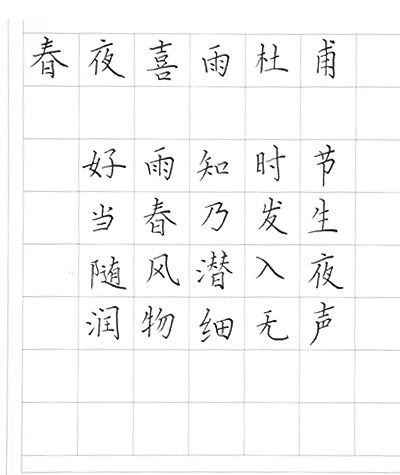 春夜喜雨杜甫
好雨知时节
当春乃发生
随风潜入夜
润物细无声